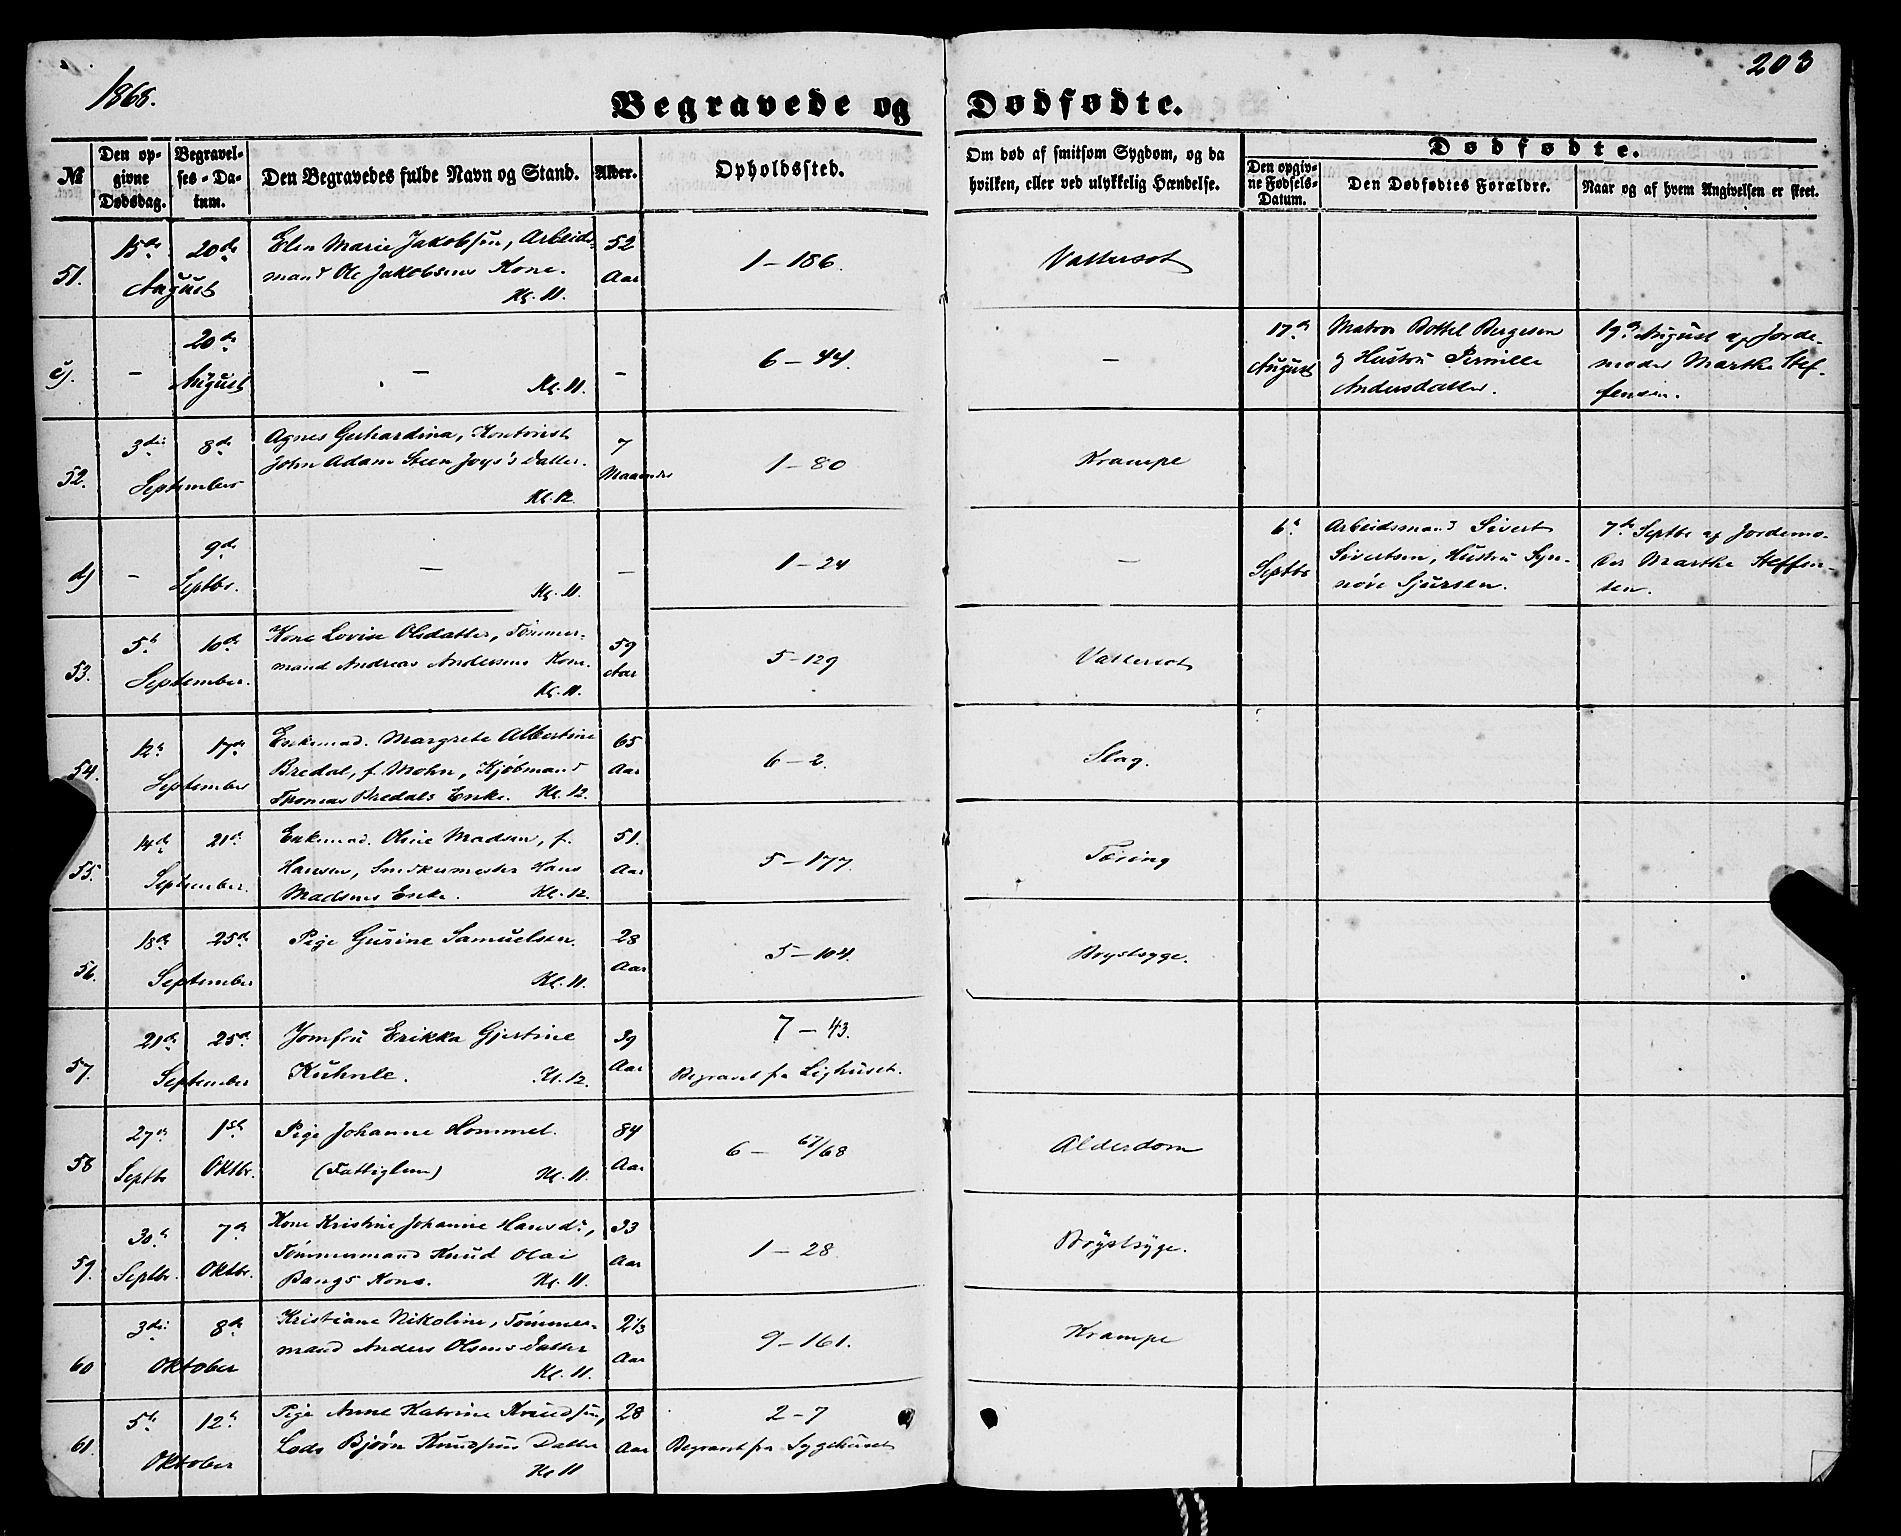 1868.
203
Begravede og Dødfødte.
№
Den op-
givne
Dødsdag.
Begravel-
ses-Da-
tum.
Den Begravedes fulde Navn og Stand.
Alder.
Opholdssted.
Om død af smitsom Sygdom, og da
hvilken, eller ved ulykkelig Hændelse.
Dødfødte.
Den opgiv-
ne Fødsels-
Datum.
Den Dødfødtes Forældre.
Naar og af hvem Angivelsen er skeet.
51.
15de 20de
August
Elen Marie Jakobsen, Arbeids-
mand Ole Jakobsens Kone.
Kl. 11.
52
Aar
1-186.
Vattersot
c).
-
20de
August
-
Kl. 11.
-
6-44.
-
17de
August
Matros Bottel Bergesen
og Hustru Pernille
Andersdatter.
19de August af Jorde-
moder Marthe Stef-
fensen.
52.
3die 8de
September
Agnes Gerhardina, Kontorist
John Adam Steen Joys's Datter.
Kl. 12.
7
Maaneder
1-80
Krampe
d)
-
9de
Septbr.
-
Kl. 11.
-
1-24
-
6te
Septbr
Arbeidsmand Sivert
Sivertsen, Hustru Syn-
növe Sjursen.
7de Septbr af Jordemo-
der Marthe Steffen-
sen.
53.
5te 10de
September.
Kone Lovise Olsdatter, Tömmer-
mand Andreas Andersens Kone.
Kl. 11.
59
Aar
5-129
Vattersot
54.
12te 17de
September
Enkemad. Margrete Albertine
Bredal, f. Mohn, Kjöbmand
Thomas Bredals Enke. Kl. 12.
65
Aar
6-2.
Slag.
55.
14de 21de
September.
Enkemad. Oline Madsen, f.
Hansen, Snedkermester Hans
Madsens Enke. Kl. 12.
51.
Aar
5-177.
Tæring
56.
18de 25de
September
Pige Gurine Samuelsen.
Kl. 11.
28
Aar
5-104.
Brystsyge.
57.
21de 25de
September
Jomfru Erikka Gjertine
Kuhnle. Kl. 12.
39
Aar
7-43.
Begravet fra Lighuset.
58
27de
Septbr
1ste
Oktbr.
Pige Johanne Hommel.
(Fattiglem) Kl. 11.
84
Aar
6-67/68
Alderdom
59.
30te
Septbr.
7de
Oktbr.
Kone Kristine Johanne Hansdr,
Tömmermand Knud Olai
Bangs Kone. Kl. 11.
33
Aar
1-28
Brystsyge.
60
3die 8de
Oktober
Kristiane Nikoline, Tömmer-
mand Anders Olsens Datter
Kl. 11.
Aar
9-161.
Krampe
61.
5te 12te
Oktober
Pige Anne Katrine Knudsen,
Lods Björn Knudsens Datter
Kl 11
28
Aar
2-7
Begravet fra Sygehuset